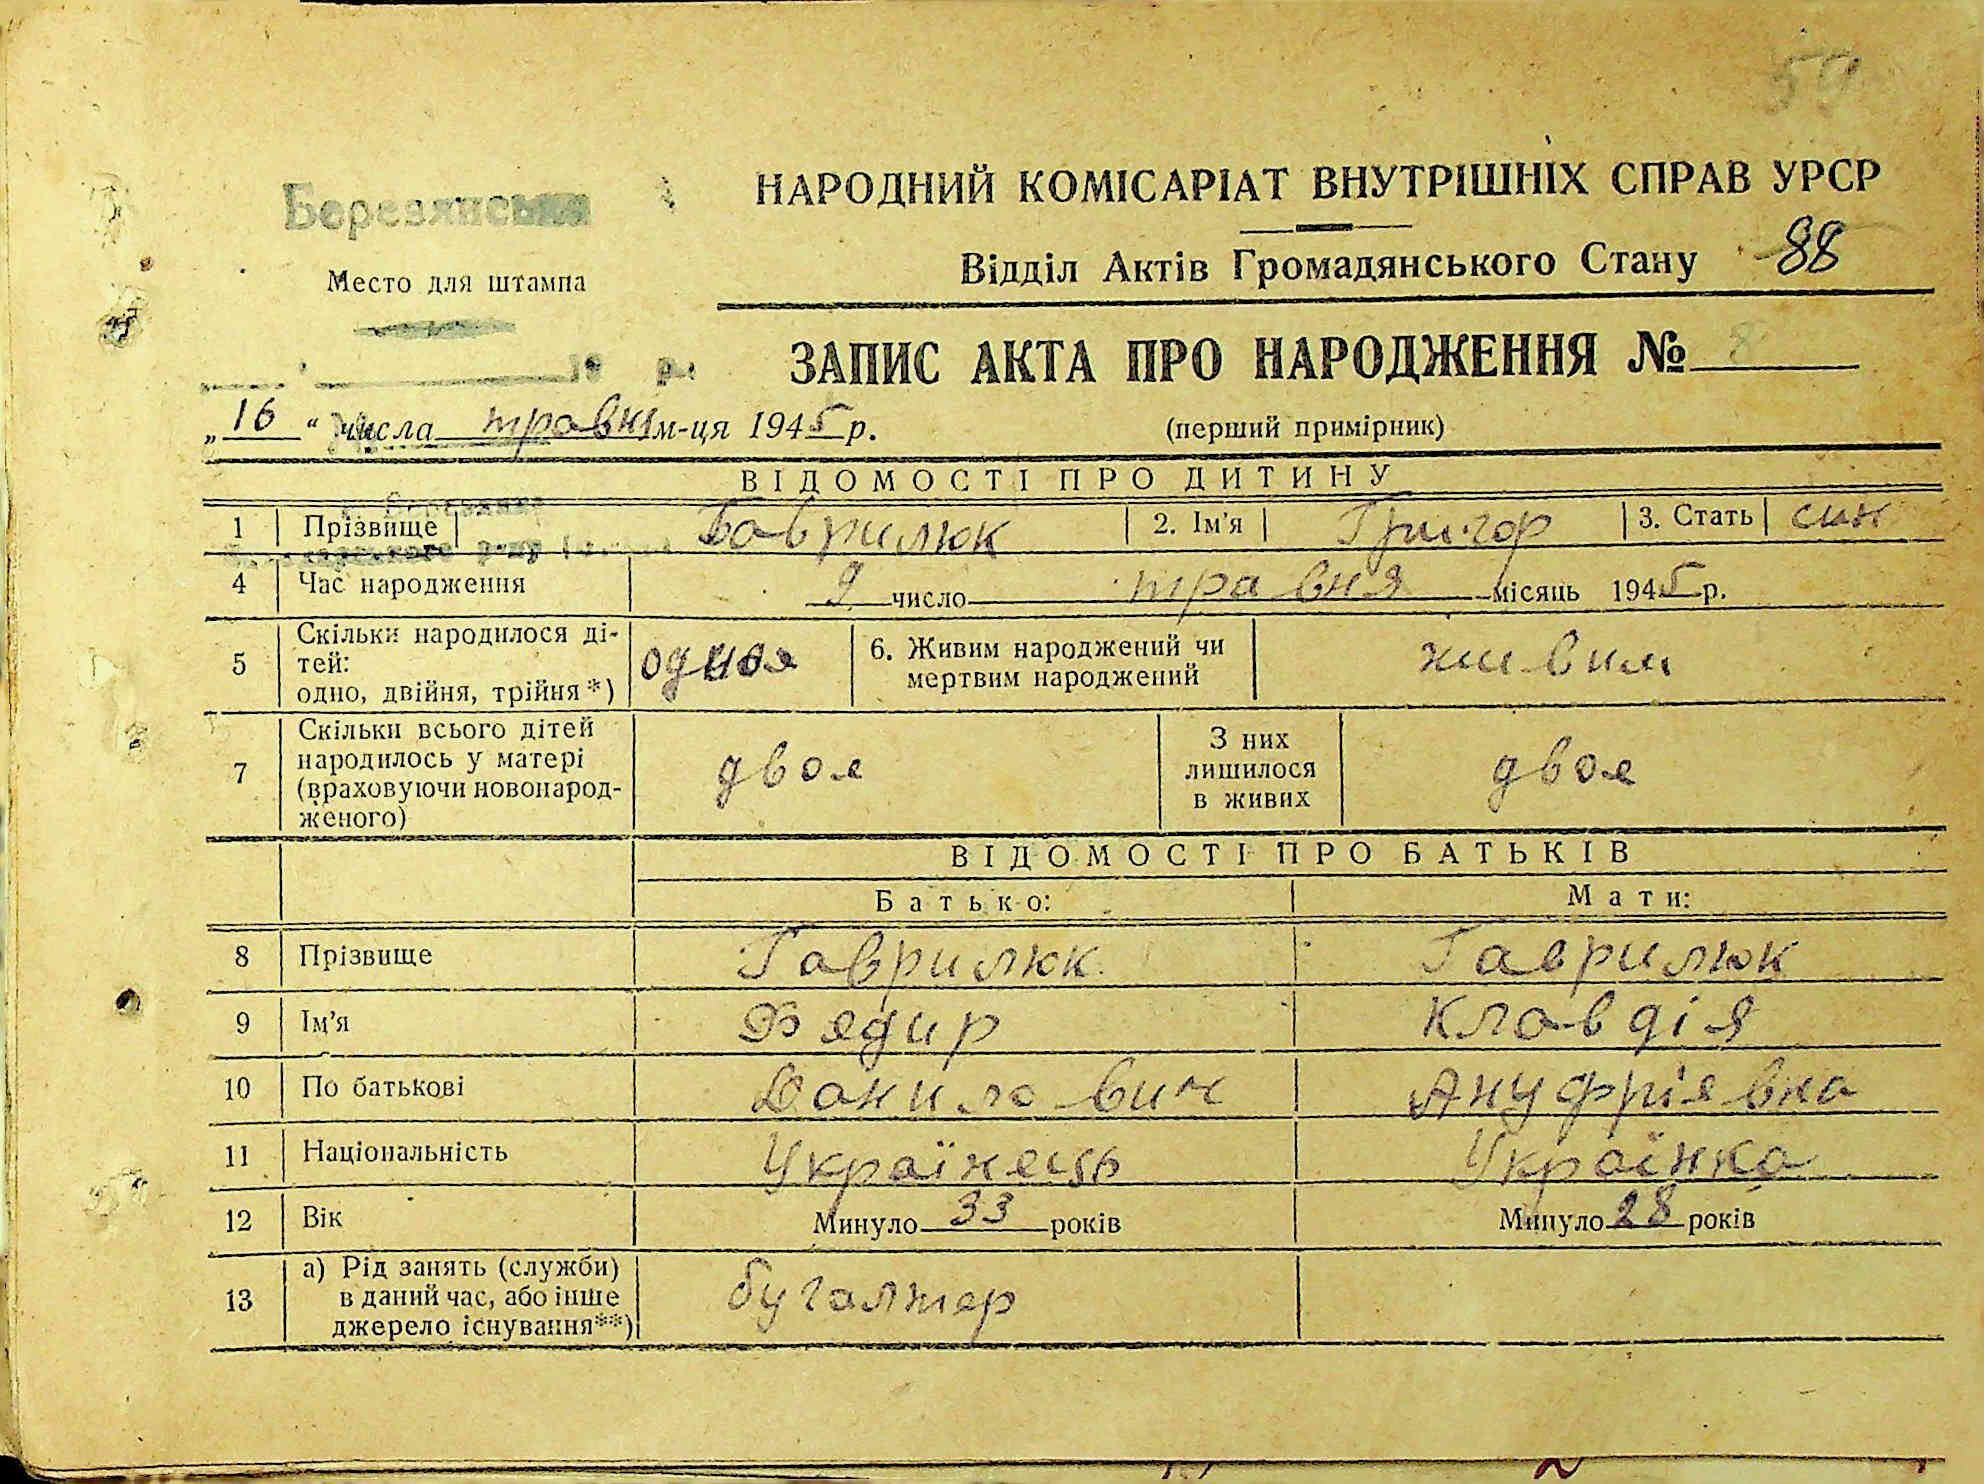 59
НАРОДНИЙ КОМІСАРІАТ ВНУТРІШНІХ СПРАВ УРСР
Березянська
Відділ Актів Громадянського Стану 88
Место для штампа
ЗАПИС АКТА ПРО НАРОДЖЕННЯ № 8
19 р.
„16“ числа травня м-ця 1945 р.
(перший примірник)
ВІДОМОСТІ ПРО ДИТИНУ
1 Прізвище Гаврилюк 2. Ім'я Григор 3. Стать син
4 Час народження 9 число травня місяць 1945 р.
5 Скільки народилося ді-
тей:
одно, двійня, трійня*) одноя 6. Живим народжений чи
мертвим народжений живим
7 Скільки всього дітей
народилось у матері
(враховуючи новонарод-
женого) двое З них
лишилося
в живих двое
ВІДОМОСТІ ПРО БАТЬКІВ
Батько: Мати:
8 Прізвище Гаврилюк Гаврилюк
9 Ім'я Хведир Клавдія
10 По батькові Данилович Ануфріевна
11 Національність Українець Українка
12 Вік Минуло 33 років Минуло 28 років
13 а) Рід занять (служби)
в даний час, або інше
джерело існування**) бугалтер